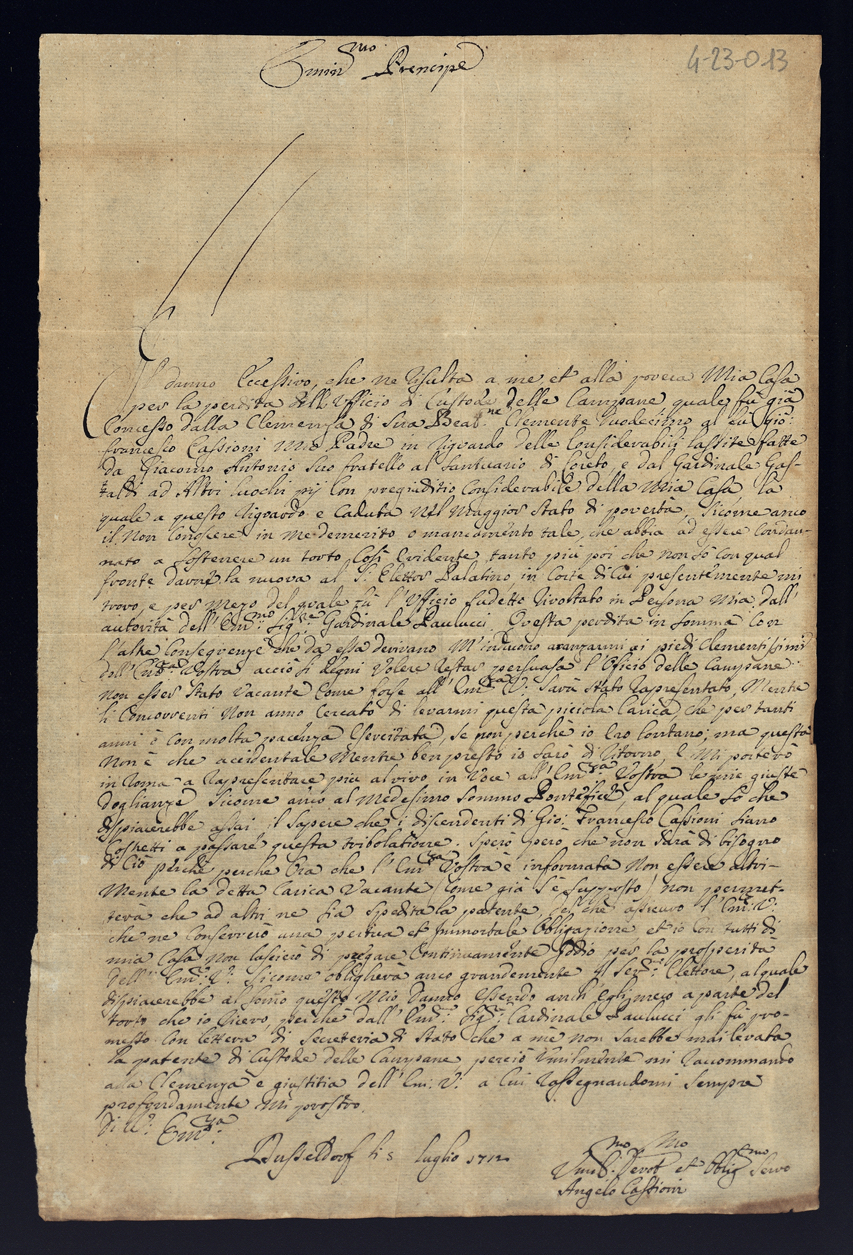 4-23-013
Emin.mo Prencipe
Il danno Eccessivo, che ne risulta a me, et alla povera Mia Casa
per la perdita dell'Ufficio di Custode delle Campane quale fù già
Concesso dalla Clemenza di sua Beat.ne Clemente Duodecimo al fù Gio:
francesco Cassioni Mio Padre in riguardo delle Considerabili lassite fatte
da Giacomo Antonio suo fratello al Santuario di Loreto, e dal Cardinale Gas-
taldi ad Altri luochi pij Con pregiuditio Considerabile della Mia Casa, la
quale a questo riguardo e Caduta nel Maggior stato di povertà, sicome anco
il non Conoscere in me demerito o mancamento tale, che abbia ad esser Condan-
nato a sostenere un torto Così Evidente, tanto più poi che non sò con qual
fronte darne la nuova al S. Elettor Palatino, in Corte di Cui presentemente mi
trovo, e per Mezo del quale fù l'Ufficio sudetto in Persona Mia dall'
autorità dell'Em.mo Sig.re Cardinale Paulucci. Questa perdita in somma Con
l'altre Consequenze che da essa derivano M'inducono avanzarmi ai piedi Clementissimi
dell'Em.za Vostra acciò si degni Volere restar persuasa l'Officio delle Campane
non esser stato Vacante Come forse all'Em.za V. sarà stato rapresentato, Mentre
li Concorrenti Non anno Cercato di levarmi questa piciola Carica che per tanti
anni ò con molta pacienza Esercitata, se non perchè io ero lontano; ma questa
Non è che accidentale Mentre ben presto io sarò di ritorno, e Mi porterò
in Roma a rapresentare più al vivo in Voce all'Em.za Vostra le mie giuste
doglianze sicome anco al Medesimo Sommo Pontefice, al quale sò che
dispiacerebbe assai il sapere che i discendenti di Gio: Francesco Cassioni siano
Costretti a passare questa tribolatione. Spero però che non sarà di bisogno
di Ciò perche Ora che l'Em.za Vostra è informata Non essere altri-
Mente la detta Carica Vacante (Come già s'è supposto) non permet-
terà che ad altri ne sia spedita la patente, del che assicuro l'Em: V:
che ne Conserverò una perpetua et Immortale Obligazione et io Con tutti di
mia Casa Non lascierò di pregare Continuamente Iddio per la prosperità
dell' Em: V: sicome obligherà anco grandemente il Ser.mo Elettore, al quale
dispiacerebbe al sommo questo Mio danno Essendo anch'Egli a parte del
torto che io ricevo, perchè dall'Em: Sig.: Cardinale Paulucci gli fù pro-
messo Con lettera di Secreteria di Stato che a me non sarebbe mai levata
la patente di Custode delle Campane perciò Umilmente mi raccommando
alla Clemenza e giustitia dell'Em: V: a Cui rassegnandomi sempre
profondamente mi prostro.
Di V: Em.za
Dusseldorf li 8 luglio 1712
Umil.mo Devot.mo et Oblig.mo Servo
Angelo Cassioni